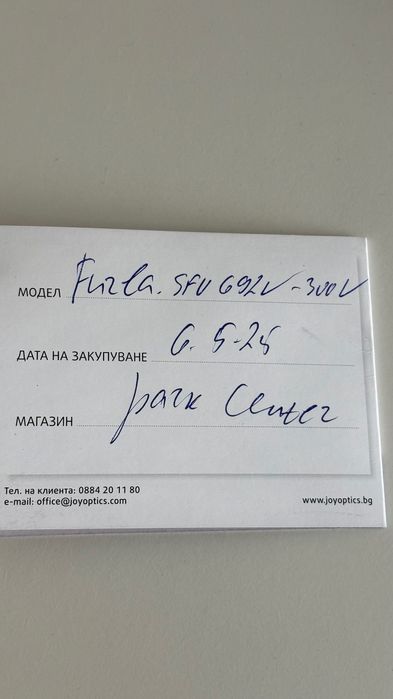 МОДЕЛ Furla. SFU692V-300V
ДАТА НА ЗАКУПУВАНЕ 6. 5-25
МАГАЗИН park Center
Тел. на клиента: 0884 20 11 80
e-mail: office@joyoptics.com
www.joyoptics.bg